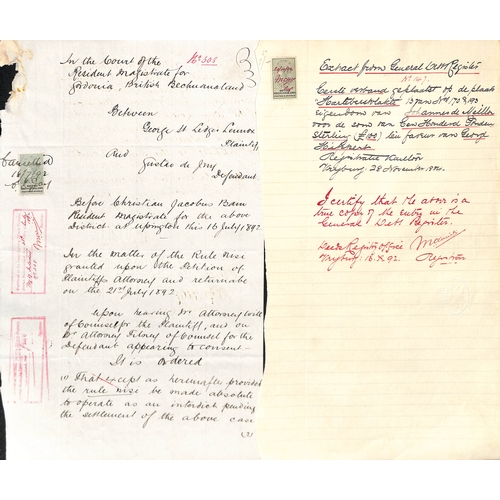 In the Court of the No 505
Resident Magistrate for
Gordonia, British Bechuanaland
Between
George St Leger Lennox
Plaintiff
And
Gustav de
Defendant
Cancelled
16/7/92
Before Christian Jacobus Bam
Resident Magistrate for the above
District at Upington this 16 July 1892.
In the matter of the Rule Nisi
granted upon the Petition of
Plaintiffs Attorney and returnable
on the 21st July 1892.
upon hearing Mr Attorney
of Counsel for the Plaintiff, and on
Mr Attorney of Counsel for the
Defendant appearing to consent-
It is ordered
(1) That except as hereinafter provided
the rule nisi be made absolute
to operate as an interdict pending
the settlement of the above case
(2)
Extract from General Debt Register
Eerste verband geplaatst op de plaats
eigendom van
voor de som van Een Honderd Ponden
Sterling ten faveur van George
Registratie Kantoor
Vryburg 28 November
I certify that the above is a
true copy of the entry in the
General Debt Register.
Deeds Registry Office
Vryburg 16.X.92. Registrar